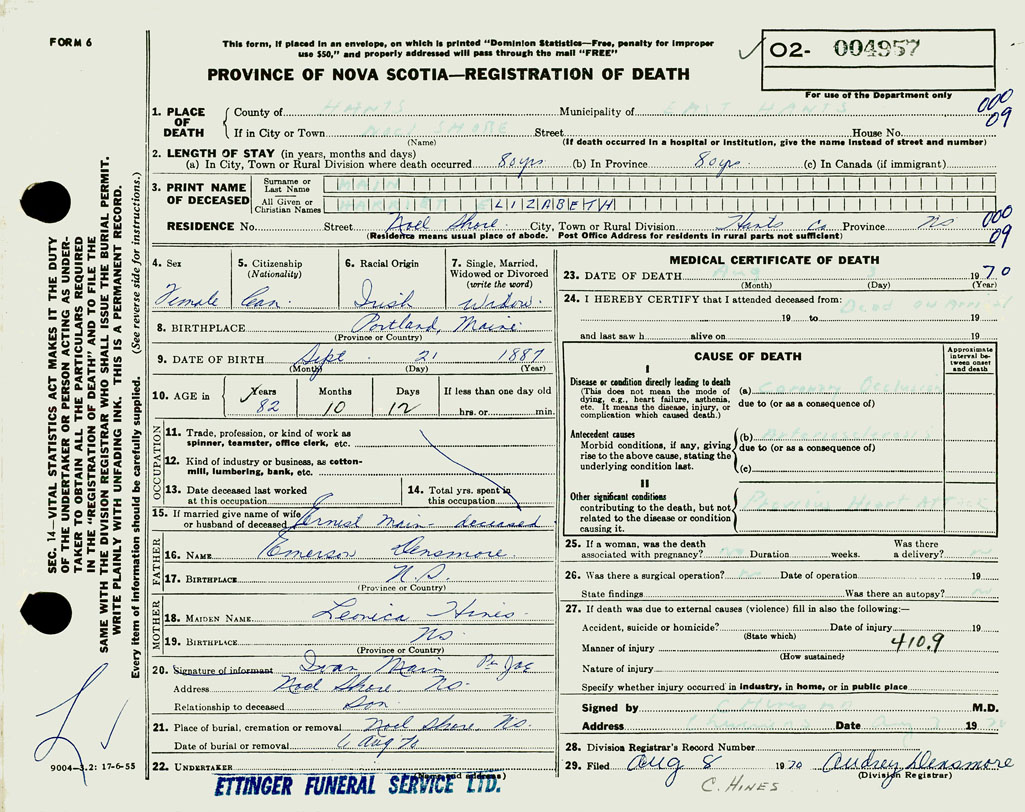 FORM 6
This form, if placed in an envelope, on which is printed "Dominion Statistics—Free, penalty for improper
use $50," and properly addressed will pass through the mail "FREE"
PROVINCE OF NOVA SCOTIA—REGISTRATION OF DEATH
O2- 004957
For use of the Department only
SEC. 14—VITAL STATISTICS ACT MAKES IT THE DUTY
OF THE UNDERTAKER OR PERSON ACTING AS UNDER-
TAKER TO OBTAIN ALL THE PARTICULARS REQUIRED
IN THE "REGISTRATION OF DEATH" AND TO FILE THE
SAME WITH THE DIVISION REGISTRAR WHO SHALL ISSUE THE BURIAL PERMIT.
WRITE PLAINLY WITH UNFADING INK. THIS IS A PERMANENT RECORD.
Every item of information should be carefully supplied. (See reverse side for instructions.)
1. PLACE OF DEATH
County of HANTS Municipality of EAST HANTS 000
If in City or Town NOEL SHORE Street House No. 09
(Name) (If death occurred in a hospital or institution, give the name instead of street and number)
2. LENGTH OF STAY (in years, months and days)
(a) In City, Town or Rural Division where death occurred 80 yrs (b) In Province 80 yrs. (c) In Canada (if immigrant)
3. PRINT NAME OF DECEASED
Surname or Last Name MAIN
All Given or Christian Names HARRIET ELIZABETH
RESIDENCE No. Street Noel Shore City, Town or Rural Division Hants Co Province NS 000
(Residence means usual place of abode. Post Office Address for residents in rural parts not sufficient) 09
4. Sex Female
5. Citizenship (Nationality) Can.
6. Racial Origin Irish
7. Single, Married, Widowed or Divorced (write the word) Widow.
8. BIRTHPLACE Portland, Maine
(Province or Country)
9. DATE OF BIRTH Sept. 21 1887
(Month) (Day) (Year)
10. AGE in Years 82 Months 10 Days 12 If less than one day old
hrs. or min.
OCCUPATION
11. Trade, profession, or kind of work as
spinner, teamster, office clerk, etc.
12. Kind of industry or business, as cotton-
mill, lumbering, bank, etc.
13. Date deceased last worked
at this occupation
14. Total yrs. spent in
this occupation
15. If married give name of wife
or husband of deceased Ernest Main - deceased
FATHER
16. NAME Emerson Densmore
17. BIRTHPLACE N.S.
(Province or Country)
MOTHER
18. MAIDEN NAME Leonica Hines
19. BIRTHPLACE NS
(Province or Country)
20. Signature of informant Ivan Main Per JAE
Address Noel Shore. NS.
Relationship to deceased Son
21. Place of burial, cremation or removal Noel Shore, NS.
Date of burial or removal 6 Aug 70
22. UNDERTAKER ETTINGER FUNERAL SERVICE LTD.
(Name and address)
9004-3.2: 17-6-55
MEDICAL CERTIFICATE OF DEATH
23. DATE OF DEATH Aug 3 1970
(Month) (Day) (Year)
24. I HEREBY CERTIFY that I attended deceased from: Dead on Arrival
19 to 19
and last saw h alive on 19
CAUSE OF DEATH
Approximate interval be-tween onset and death
I
Disease or condition directly leading to death
(This does not mean the mode of
dying, e.g., heart failure, asthenia,
etc. It means the disease, injury, or
complication which caused death.)
(a) Coronary Occlusion
due to (or as a consequence of)
Antecedent causes
Morbid conditions, if any, giving
rise to the above cause, stating the
underlying condition last.
(b)
due to (or as a consequence of)
(c)
II
Other significant conditions
contributing to the death, but not
related to the disease or condition
causing it.
Previous Heart Attack
25. If a woman, was the death
associated with pregnancy? No Duration weeks. Was there
a delivery? No
26. Was there a surgical operation? No Date of operation 19
State findings Was there an autopsy? No
27. If death was due to external causes (violence) fill in also the following:—
Accident, suicide or homicide? Date of injury 19
(State which)
Manner of injury 410.9
(How sustained?
Nature of injury
Specify whether injury occurred in industry, in home, or in public place
Signed by C Hines MD M.D.
Address Date Aug 19 70
28. Division Registrar's Record Number
29. Filed Aug 8 1970 Audrey Densmore
(Division Registrar)
C. HINES